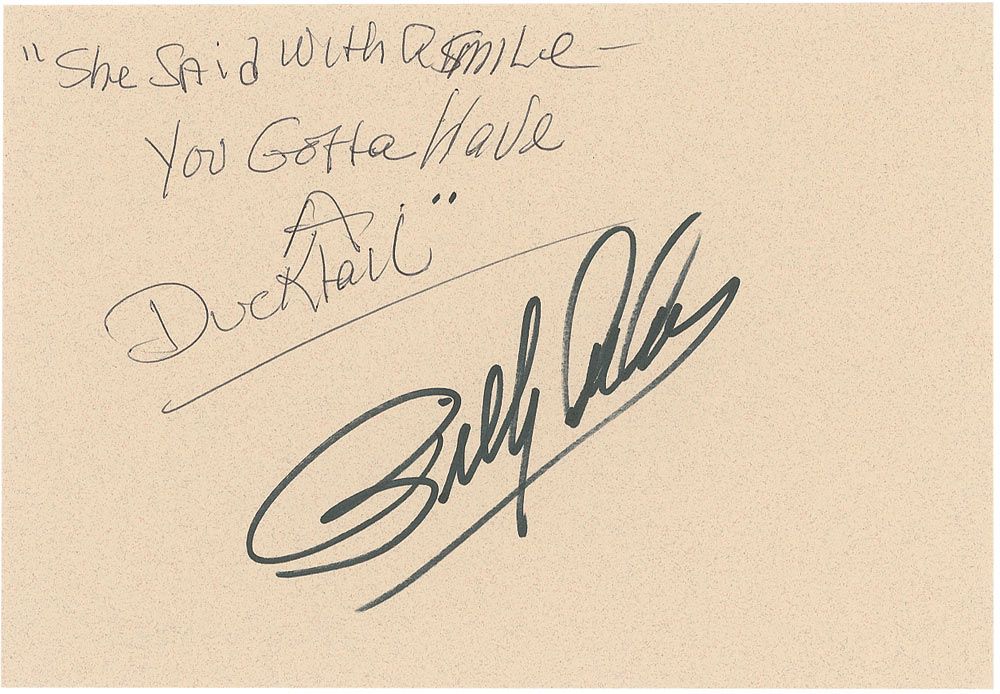 "She Said With A Smile –
You Gotta Have
A
Ducktail"
Billy Adams